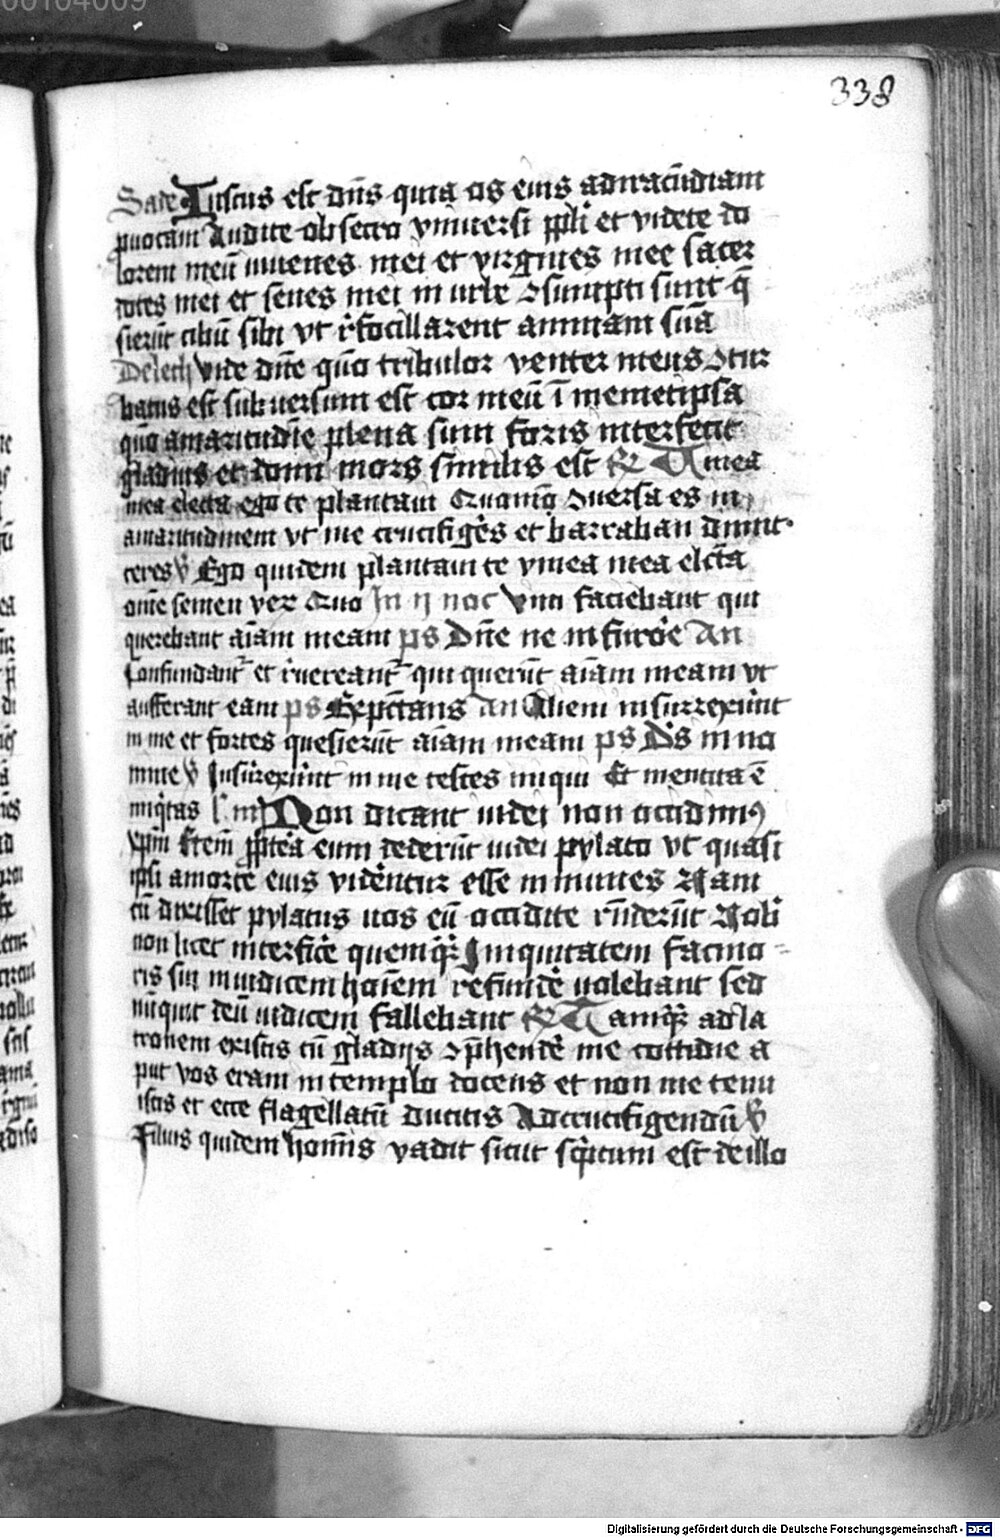 00104009
338
Sade Iustus est dn̄s quia os eius ad iracūdiam
puocaui Audite obsecro vniuersi ppl̄i et videte do
lorem meū iuuenes mei et virgines mee sacer
dotes mei et senes mei in urbe ꝯsumpti sunt q̄
sierūt cibū sibi vt r̄focillarent animam suā
Delech vide dn̄e quō tribulor venter meus ꝯtur
batus est subuersum est cor meū ī memetipsa
quō amaritudīe plena sum foris interfecit
gladius et domi mors similis est ℟ Uinea
mea electa ego te plantaui Quomō ꝯuersa es in
amaritudinem vt me crucifigēs et barraban dimit
teres ℣ Ego quidem plantaui te vinea mea elc̄ta
om̄e semen ver Quo In ij noc Vim faciebant qui
querebant aīam meam ps Dn̄e ne in furōe An
Confundant᷑ et r̄uereant᷑ qui querūt aīam meam vt
aufferant eam ps Expc̄tans An Alieni insurrexūnt
in me et fortes quesierūt aīam meam ps Ds̄ in no
mine ℣ Insūrexūnt in me testes iniqui Et mentita ē
iniqitas l̄ iiij Non dicant iudei non occidimꝯ
xp̄m Etēm ꝓptēa eum dederūt iudei pylato vt quasi
ipsi a morte eius vidēntur esse inmunes Nam
cū dixisset pylatus uos eū occidite r̄nderūt Nobꝭ
non licet interficē quemq̄ꝫ Iniquitatem facino
ris sui in iudicem hoīem refundē uolebant sed
nūquit deū iudicem fallebant ℟ Tamqꝫ ad la
tronem existis cū gladijs ꝯp̄hendē me cottidie a
put vos eram in templo docens et non me tenu
istis et ecce flagellatū ducitis Ad crucifigendū ℣
Filius quidem homīs vadit sicut sc̄ptum est de illo
Digitalisierung gefördert durch die Deutsche Forschungsgemeinschaft - DFG